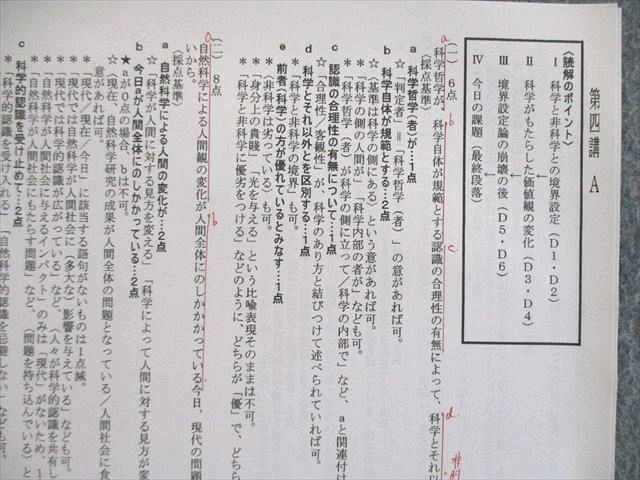 第四講 A
〈読解のポイント〉
Ⅰ 科学と非科学との境界設定（Ｄ１・Ｄ２）
↓
Ⅱ 科学がもたらした価値観の変化（Ｄ３・Ｄ４）
↓
Ⅲ 境界設定論の崩壊の後（Ｄ５・Ｄ６）
↓
Ⅳ 今日の課題（最終段落）
（一） ６点
a b c d
科学哲学が、科学自体が規範とする認識の合理性の有無によって、科学とそれ以
〈採点基準〉
a 科学哲学（者）が…１点
☆「判定者」＝「科学哲学（者）」の意があれば可。
b 科学自体が規範とする…２点
☆〈基準は科学の側にある〉という意があれば可。
＊「科学の側の人間が」「科学内部の者が」なども可。
＊「科学哲学（者）が科学の側に立って／科学の内部で」など、ａと関連付け
c 認識の合理性の有無について…１点
☆「合理性／客観性」が、科学のあり方と結びつけて述べられていれば可。
d 科学とそれ以外とを区別する…１点
＊「科学と非科学の境界」も可。
e 前者（科学）の方が優れているとみなす…１点
＊「非科学は劣っている」も可。
＊「身分上の貴賤」「光を与える」という比喩表現そのままは不可。
＊「科学と非科学に優劣をつける」などのように、どちらが「優」で、どちら
（二） ８点
a b
自然科学による人間観の変化が人間全体にのしかかっている今日、現代の問題
いから。
〈採点基準〉
a 自然科学による人間の変化が…２点
☆「科学が人間に対する見方を変える」「科学によって人間に対する見方が変
b 今日ａが人間全体にのしかかっている…２点
★ａが０点の場合、ｂは不可。
☆〈現在、自然科学研究の成果が人間全体の問題となっている／人間社会に食
意があれば可。
＊「現代／現在／今日」に該当する語句がないものは１点減。
＊「現代では自然科学が人間社会に（多大な）影響を与えている」なども可。
＊「現代では科学的認識が広がっている」など、〈人々が科学的認識を共有し
＊「自然科学が人間社会に与えるインパクト」のみは「現代」がないため、１
＊「自然科学が人間社会にもたらす問題」など、〈問題を持ち込んでいる〉と
c 科学的認識を受け止めて…２点
＊「科学的認識を受け入れる」「自然科学的認識を忌避しない」なども可。